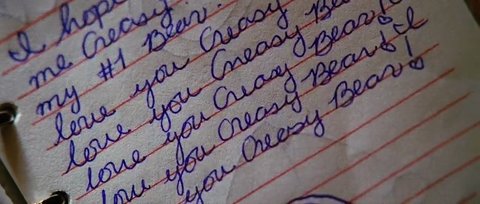 I hope
me Creasy
my #1 Bear.
love you Creasy
love you Creasy Bear
love you Creasy Bear! I
love you Creasy Bear! I
love you Creasy Bear!
you Creasy Bear!